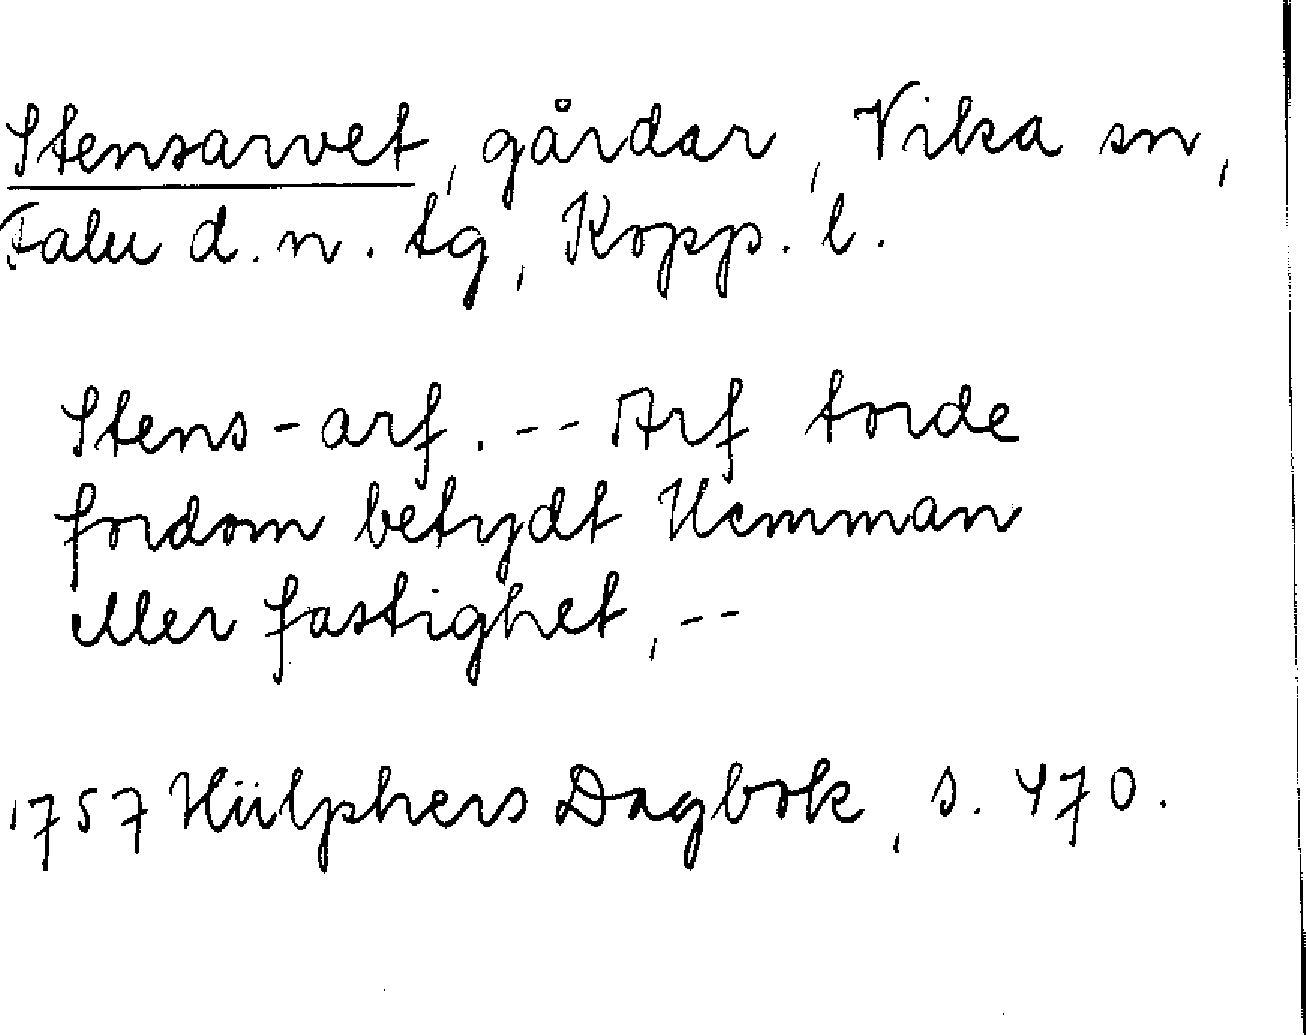 Stensarvet, gårdar, Vika sn,
Falu d.n. tg, Kopp. l.
Stens-arf. -- Arf torde
fordom betydt Hemman
eller fastighet, --
1757 Hülphers Dagbok, s. 470.